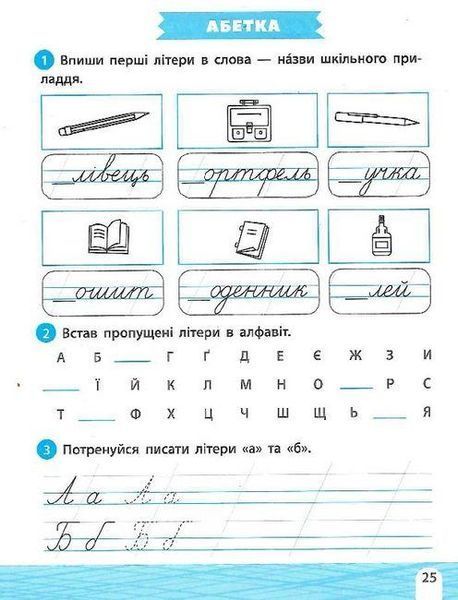 АБЕТКА
1 Впиши перші літери в слова — на́зви шкільного при-
ладдя.
_лівець _ортфель _учка
_ошит _оденник _лей
2 Встав пропущені літери в алфавіт.
А Б ___ Г Ґ Д Е Є Ж З И
___ Ї Й К Л М Н О ___ Р С
Т ___ Ф Х Ц Ч Ш Щ Ь ___ Я
3 Потренуйся писати літери «а» та «б».
А а А а
Б б Б б
25